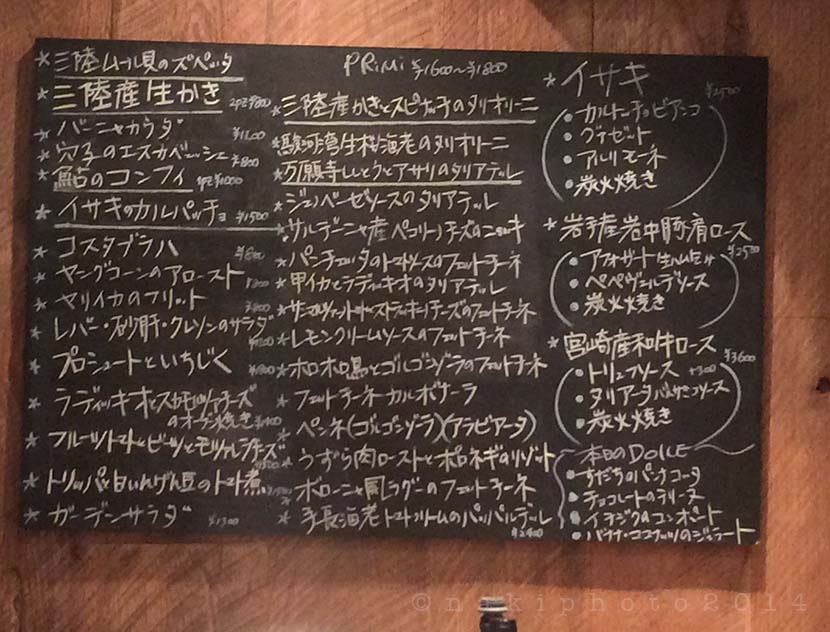 三陸ムール貝のズペッタ
三陸産生かき 2PZ ¥800
バーニャカウダ ¥1600
穴子のエスカベッシェ ¥800
鮎のコンフィ 1PZ ¥1000
イサキのカルパッチョ ¥1500
コスタブラバ ¥800
ヤングコーンのアロースト
ヤリイカのフリット ¥800
レバー・砂肝・クレソンのサラダ
プロシュートといちじく
ラディッキオとスカモルツァチーズ
のオーブン焼き
フルーツトマトとビーツとモッツァレラチーズ
トリッパと白いんげん豆のトマト煮
ガーデンサラダ ¥1300
PRIMI ¥1600〜¥1800
三陸産かきとスピナッチのタリオリーニ
駿河湾生桜海老のタリオリーニ
万願寺ししとうとアサリのタリアテッレ
ジェノベーゼソースのタリアテッレ
サルデーニャ産ペコリーノチーズのニョッキ
パンチェッタのトマトソースのフェットチーネ
甲イカとラディッキオのタリアテッレ
サンマルツァーノトマトとストラッキーノチーズのフェットチーネ
レモンクリームソースのフェットチーネ
ホロホロ鳥とゴルゴンゾーラのフェットチーネ
フェットチーネカルボナーラ
ペンネ(ゴルゴンゾーラ)(アラビアータ)
うずら肉ローストとポロネギのリゾット
ボローニャ風ラグーのフェットチーネ
手長海老トマトクリームのパッパルデッレ
¥2400
イサキ ¥2500
カルトッチョビアンコ
グアゼット
アルリモーネ
炭火焼き
岩手産岩中豚肩ロース ¥2500
アフォガート生ハムセット
ペペヴェルデソース
炭火焼き
宮崎産和牛ロース ¥3600
トリュフソース +300
タリアータバルサミコソース
炭火焼き
本日のDOLCE
すだちのパンナコータ
チョコレートのテリーヌ
イチジクのコンポート
バナナ・ココナッツのジェラート
©naokiphoto2014